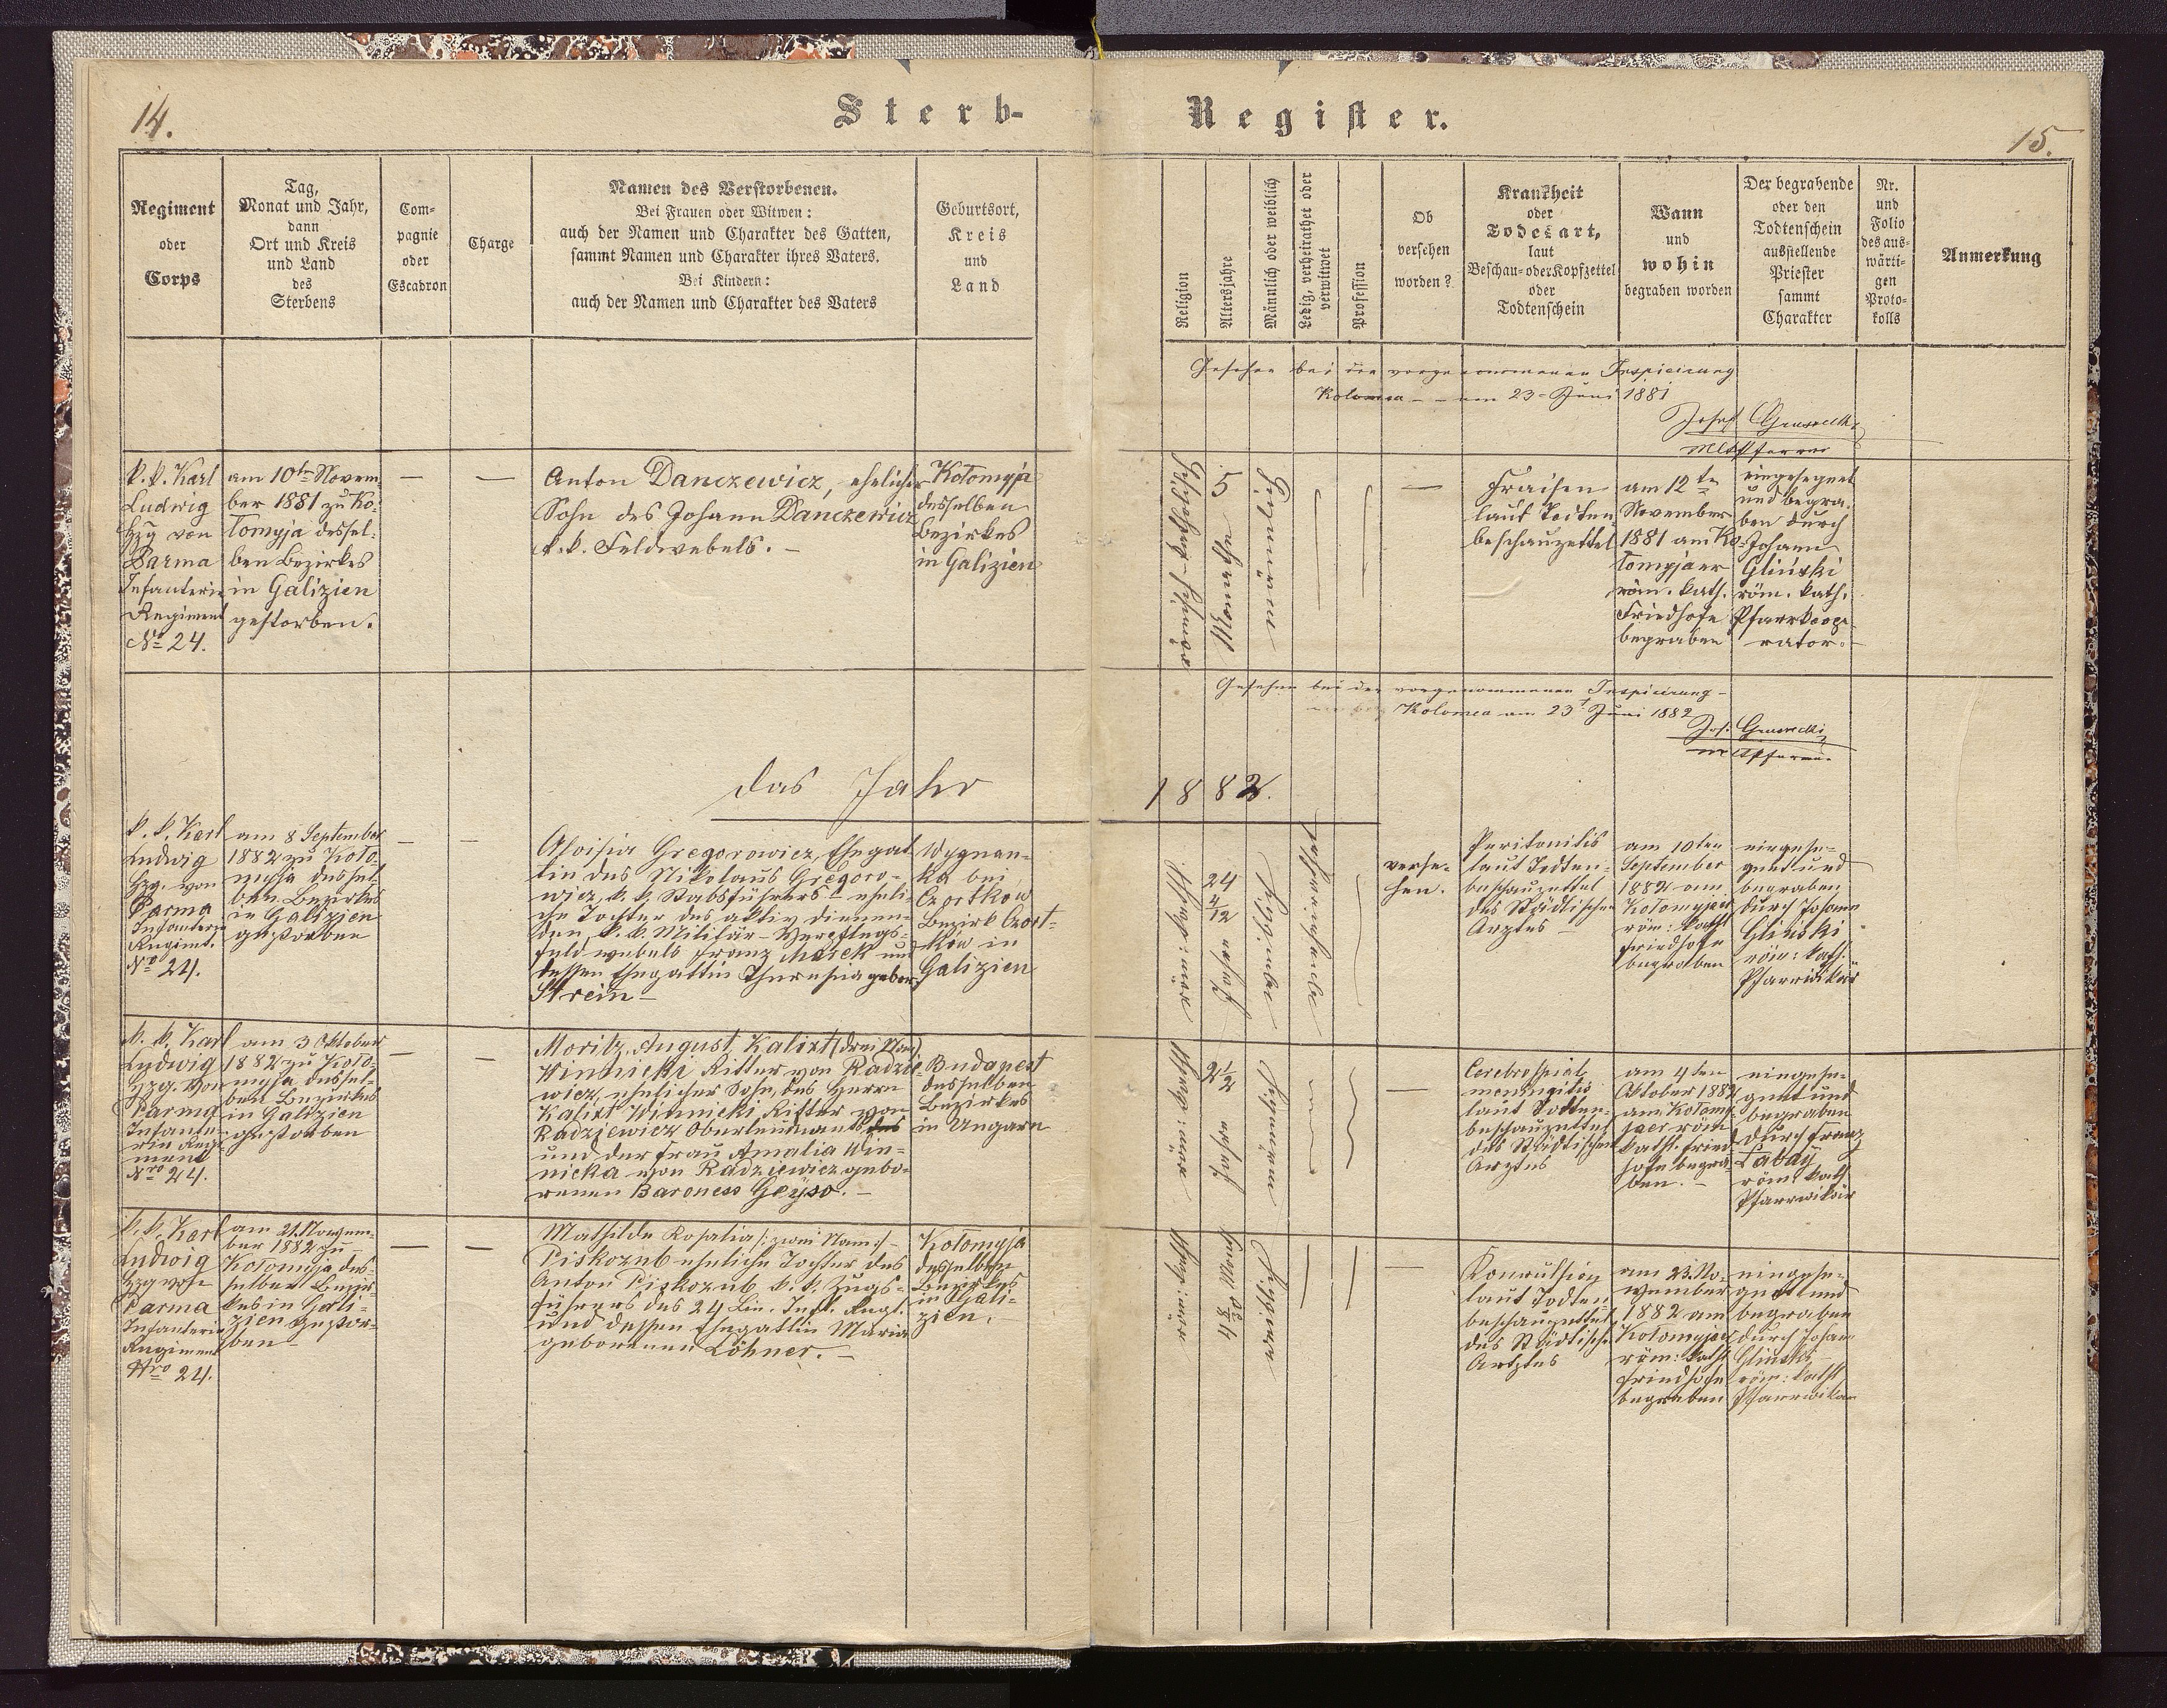 14.
Sterb-
Register.
15.
Regiment
oder
Corps
Tag,
Monat und Jahr,
dann
Ort und Kreis
und Land
des
Sterbens
Com-
pagnie
oder
Escadron
Charge
Namen des Verstorbenen.
Bei Frauen oder Witwen:
auch der Namen und Charakter des Gatten,
sammt Namen und Charakter ihres Vaters.
Bei Kindern:
auch der Namen und Charakter des Vaters
Geburtsort,
Kreis
und
Land
Religion
Altersjahre
Männlich oder weiblich
Ledig, verheirathet oder
verwitwet
Profession
Ob
versehen
worden?
Krankheit
oder
Todesart,
laut
Beschau- oder Kopfzettel
oder
Todtenschein
Wann
und
wohin
begraben worden
Der begrabende
oder den
Todtenschein
ausstellende
Priester
sammt
Charakter
Nr.
und
Folio
des aus-
wärti-
gen
Proto-
kolls
Anmerkung
Gesehen bei der vorgenommenen Inspicirung
Kolomea - - am 23 - Juni 1881
Josef
k. k. Karl
Ludwig
Hzg von
Parma
Infanterie
Regiment
No 24.
am 10ten Novem-
ber 1881 zu Ko-
łomyja dessel-
ben Bezirkes
in Galizien
gestorben.
—
—
Anton Danczewicz, ehelicher
Sohn des Johann Danczewicz
k. k. Feldwebels. -
Kołomyja
desselben
Bezirkes
in Galizien
5 Monathe
—
Fraisen
laut Todten-
beschauzettel
am 12ten
November
1881 am Ko-
łomyjaer
röm. kath.
Friedhofe
begraben
eingesegnet
und begra-
ben durch
Johann
Gliński
röm. kath.
Pfarrkoope-
rator.
Gesehen bei der vorgenommenen Inspicirung -
Kolomea am 23t Juni 1882
Jos.
das Jahr
1882.
k. k. Karl
Ludwig
Hzg. von
Parma
Infanterie
Regimt.
Nro 24.
am 8 September
1882 zu Koło-
myja dessel-
ben Bezirkes
in Galizien
gestorben
—
—
Aloisia Gregorowicz, Ehegat-
tin des Nikolaus Gregoro-
wicz, k. k. Stabsführers - eheli-
che Tochter des aktiv dienen-
den k. k. Militär-Verpflegs-
feldwebels Franz Marek und
dessen Ehegattin Theresia gebor.
Strein -
Wygnan-
ka bei
Czortkow
Bezirk Czort-
kow in
Galizien
röm: kath:
24 4/12 Jahre
verse-
hen.
Peritonitis
laut Todten-
beschauzettel
des Städtischen
Arztes -
am 10ten
September
1882 am
Kołomyjaer
röm: kath
Friedhofe
begraben
eingese-
gnet und
begraben
durch Johann
Gliński
röm: kath.
Pfarrvikär
k. k. Karl
Ludwig
Hzg. von
Parma
Infante-
rie Regi-
ment
Nro 24.
am 3 Oktober
1882 zu Koło-
myja dessel-
ben Bezirkes
in Galizien
gestorben
—
—
Moritz, August, Kalixt (drei Nam)
Winnicki Ritter von Radzie-
wicz, ehelicher Sohn, des Herrn
Kalixt Winnicki, Ritter von
Radziewicz Oberleutnants des
und der Frau Amalia Win-
nicka von Radziewicz gebo-
renen Baroness Geyso. -
Budapest
desselben
Bezirkes
in Ungarn
röm: kath:
2 1/2 Jahre
—
Cerebrospial
meningitis
laut Todten-
beschauzettel
des Städtischen
Arztes
am 4ten
Oktober 1882
am Kołomy-
jaer röm
kath. Fried-
hofe begra-
ben. -
eingese-
gnet und
begraben
durch Franz
Łabay
röm. kath
Pfarrvikär
k. k. Karl
Ludwig
Hzg von
Parma
Infanterie
Regiment
Nro 24.
am 21. Novem-
ber 1882 zu
Kołomyja des-
selben Bezir-
kes in Gali-
zien gestor-
ben -
—
—
Mathilde Rosalia /: zwei Nam :/ -
Piskozub eheliche Tochter des
Anton Piskozub k. k. Zugs-
führers des 24 Lin. Inft. Regt.
und dessen Ehegattin Maria
geborenen Löhner. -
Kołomyja
desselben
Bezirkes
in Gali-
zien. -
röm: kath:
—
Konvulsion
laut Todten-
beschauzettel
des Städtischen
Arztes
am 23. No-
vember
1882 am
Kołomyjaer
röm: kath
Friedhofe
begraben
eingese-
gnet und
begraben
durch Johann
Gliński
röm: kath
Pfarrvikar